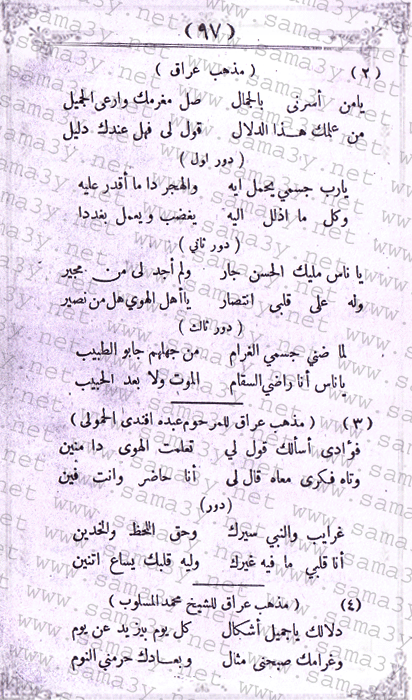 ( ٩٧ )
( ٢ ) ( مذهب عراق )
يامن أسرنى بالجمال صل مغرمك وارعى الجميل
من علمك هـذا الدلال قول لى فهل عندك دليل
( دور اول )
يارب جسمي يحمل ايه والهجر دا ما أقدر عليه
وكل ما اذلل اليه يغضب ويعمل بغددا
( دور ثاني )
يا ناس مليك الحسن جار ولم أجد لى من مجير
وله على قلبى انتصار ياأهل الهوي هل من نصير
( دور ثالث )
لما ضني جسمي الغرام من جهلهم جابو الطبيب
ياناس أنا راضي السقام الموت ولا بعد الحبيب
( ٣ ) ( مذهب عراق للمرحوم عبده افندى الحمولى )
فؤادى أسألك قول لي تعلمت الهوى دا منين
وتاه فكرى معاه قال لى أنا حاضر وانت فين
( دور )
غرايب والنبي سيرك وحق اللحظ والخدين
أنا قلبي ما فيه غيرك وليه قلبك يساع اتنين
( ٤ ) ( مذهب عراق للشيخ محمد المسلوب )
دلالك ياجميل أشكال كل يوم يزيد عن يوم
وغرامك صبحنى مثال وبعـادك حرمني النوم
www.sama3y.net